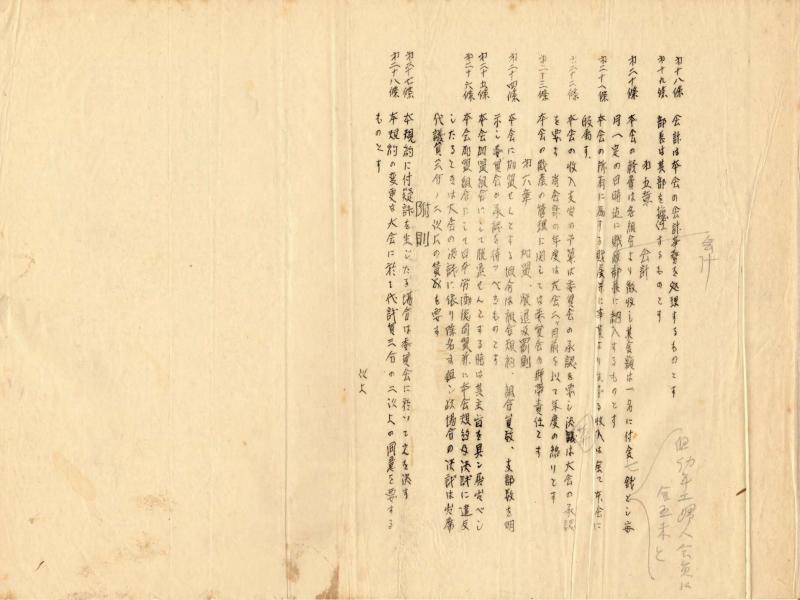 第十八條 会計は本会の会計事務を処理するものとす
第十九條 部長は其部を統任するものとす
第五章 会計
会計
第二十條 本会の経費は各組合より徴收し其金額は一名に付金七銭とし毎
月一定の日時迄に財政部長に納入するものとす
但幼年工婦人会員は
金五未と
第二十一條 本会の所有に属する財産并に事業より生ずる收入は全て本会に
收得す
第二十二條 本会の收入支出の予算は委員会の承認を要し決議は大会の承認
を要す 尚会計の年度は大会一ヶ月前を以て年度の終りとす
第二十三條 本会の財産の管理に関しては委員会の連帯責任とす
第六章 加盟、脱退及罰則
第二十四條 本会に加盟せんとする組合は組合規約、組合員数、支部数を明
示し委員会が承認を待つべきものとす
第二十五條 本会加盟組合にして脱退せんとする時は其主旨を具し届出べし
第二十六條 本会加盟組合にして日本労働総同盟并に本会規約及決議に違反
したるときは大会の決議に依り除名す 但し此場合の決議は出席
代議員三分ノ二以上の賛成を要す
附則
第二十七條 本規約に付疑議を生じたる場合は委員会に於いて之を決す
第二十八條 本規約の変更は大会に於て代議員三分の二以上の同意を要する
ものとす
以上